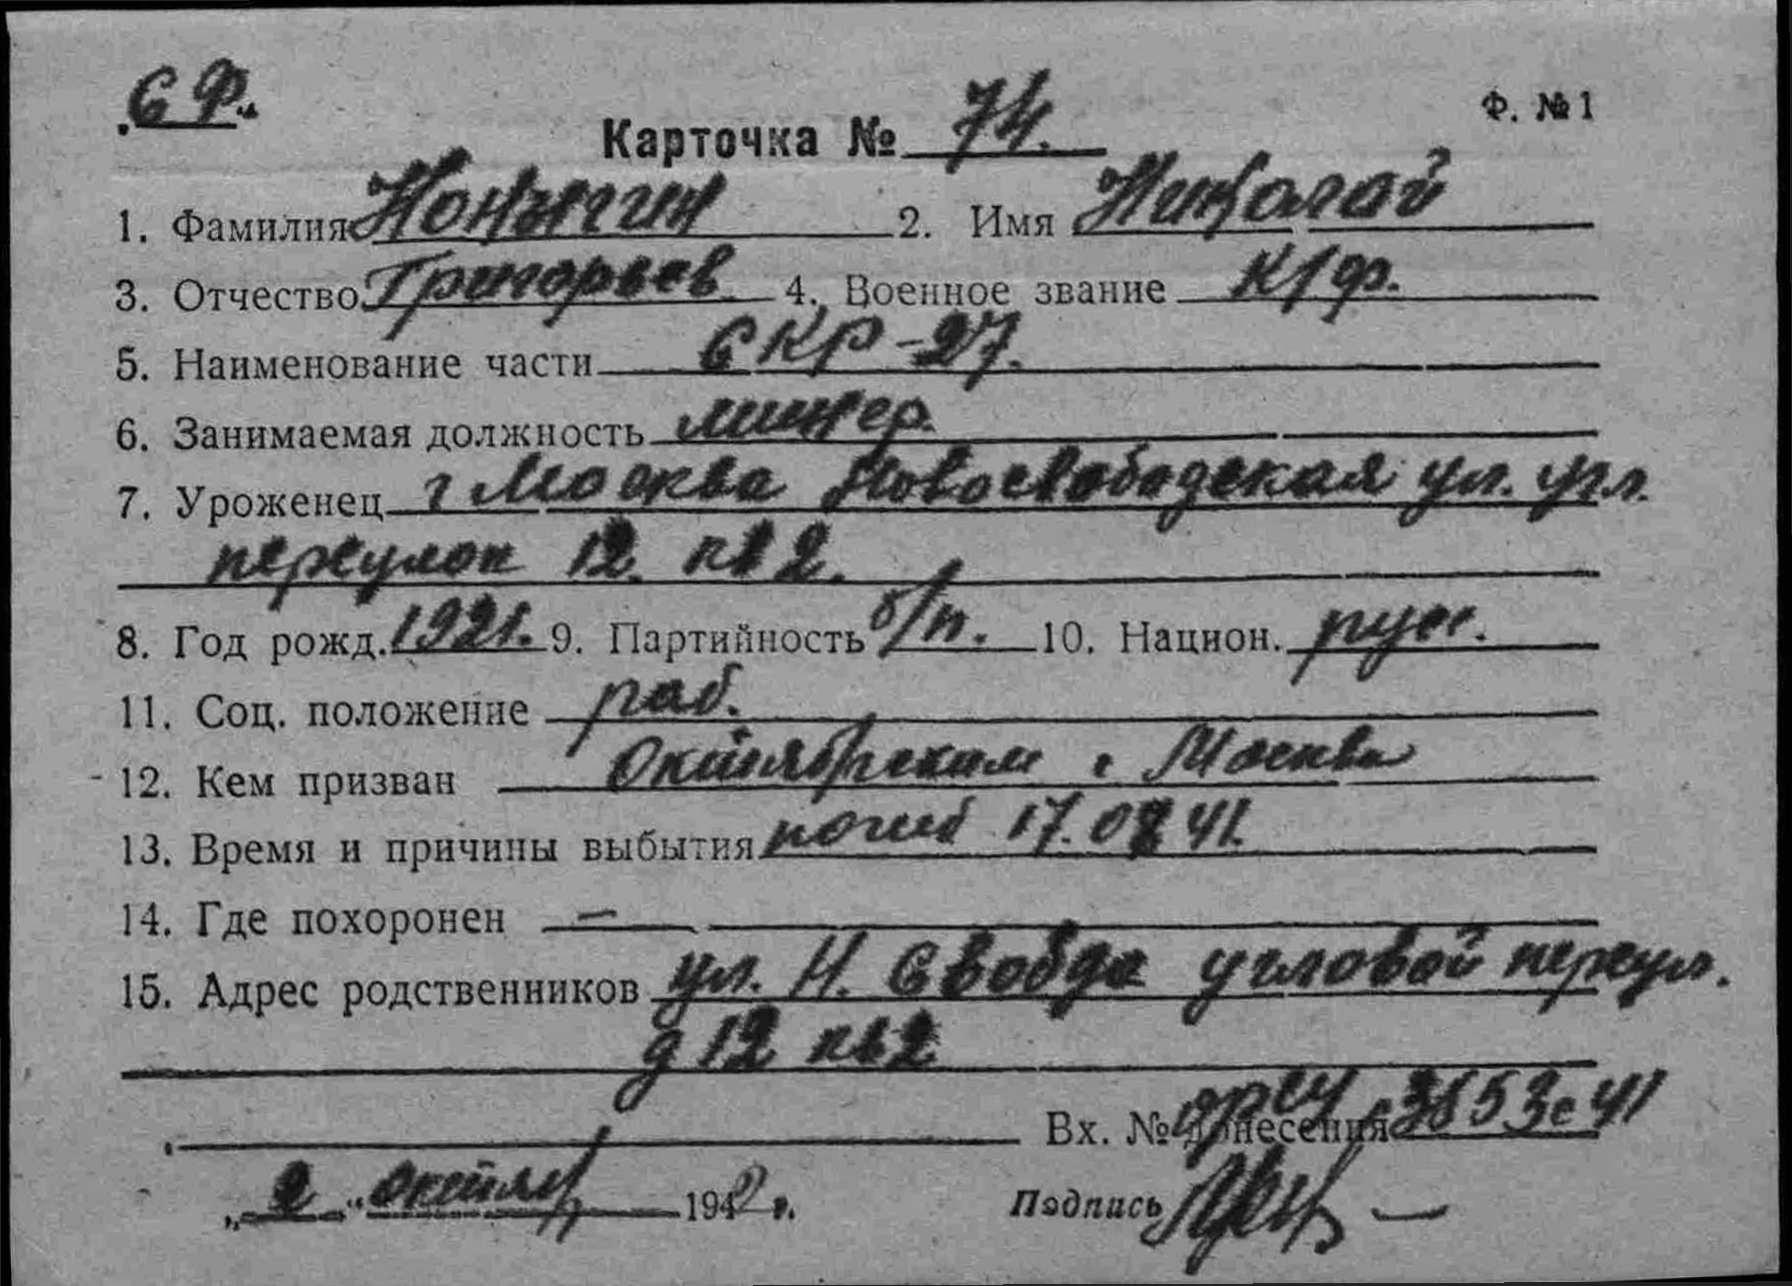 СФ.
Ф. № 1
Карточка № 74.
1. Фамилия 2. Имя Николай
3. Отчество Григорьев 4. Военное звание К/ф.
5. Наименование части СКР-27.
6. Занимаемая должность минер.
7. Уроженец г Москва Новослободская ул. угл.
переулок 12. кв 2.
8. Год рожд. 1921. 9. Партийность б/п. 10. Национ. русс.
11. Соц. положение раб.
12. Кем призван Октябрьским г. Москвы
13. Время и причины выбытия погиб 17. 41.
14. Где похоронен —
15. Адрес родственников ул. Н. Свобда угловой переул.
д 12 кв 2
Вх. № донесения 41
„2“ октяб 1942 г. Подпись